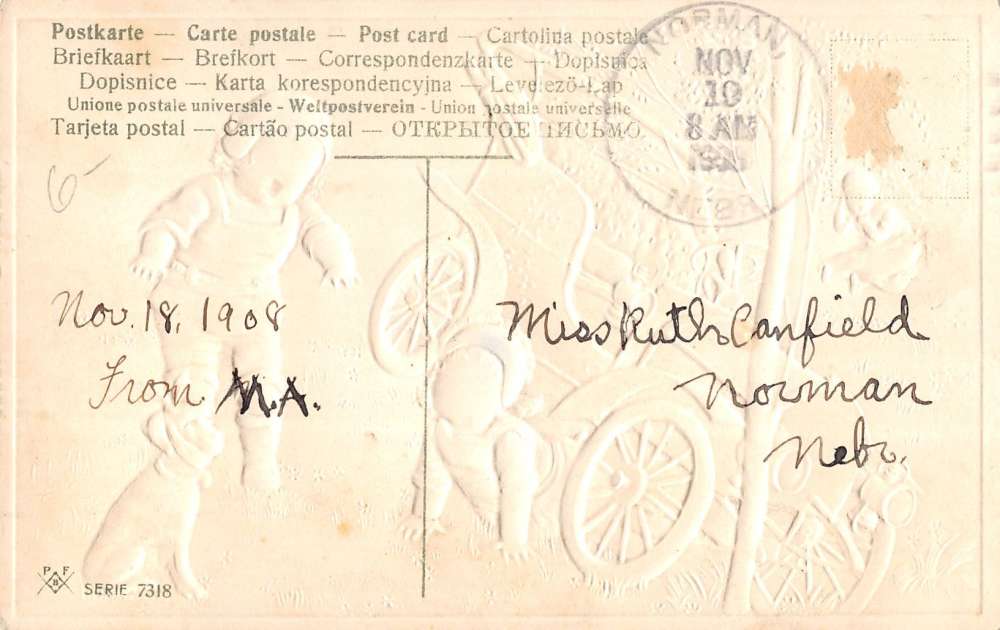 Postkarte — Carte postale — Post card — Cartolina postale
Briefkaart — Brefkort — Correspondenzkarte — Dopisnica
Dopisnice — Karta korespondencyjna — Levelező-Lap
Unione postale universale - Weltpostverein - Union postale universelle
Tarjeta postal — Cartão postal — ОТКРЫТОЕ ПИСЬМО.
NORMAN
NOV
19
8 AM
NEBR
6-
Nov. 18, 1908
From M.A.
Miss Ruth Canfield
Norman
Nebr.
P F
B
SERIE 7318